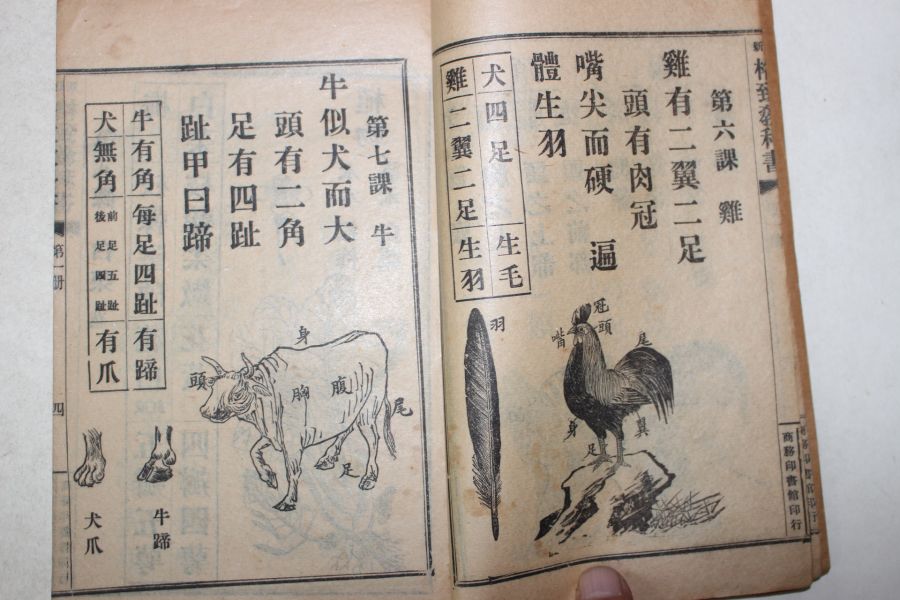 格致教科書
第六課 雞
雞有二翼二足
頭有肉冠
嘴尖而硬 遍
體生羽
犬 四足 生毛
雞 二翼二足 生羽
羽
冠
頭
嘴
尾
身
翼
足
商務印書館印行
第七課 牛
牛似犬而大
頭有二角
足有四趾
趾甲曰蹄
牛有角 每足四趾 有蹄
犬無角 前足五趾 後足四趾 有爪
身
頭
胸
腹
尾
足
牛蹄
犬爪
第一册
四